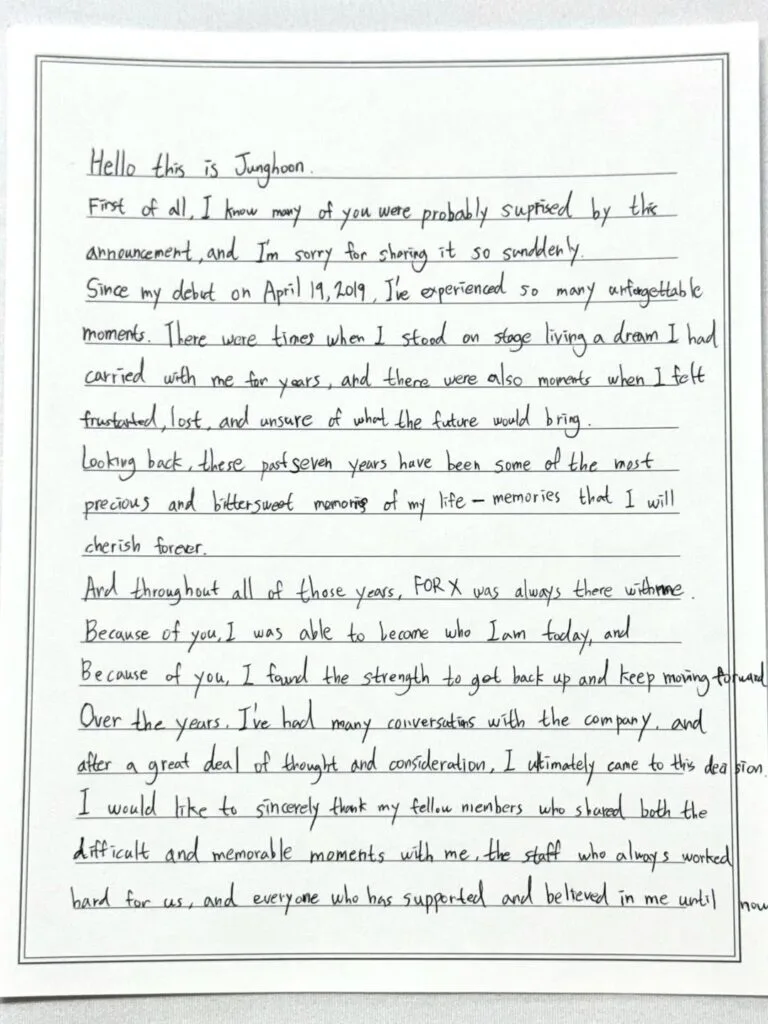 Hello this is Junghoon.
First of all, I know many of you were probably suprised by this
announcement, and I'm sorry for sharing it so sunddenly.
Since my debut on April 19, 2019, I've experienced so many unforgettable
moments. There were times when I stood on stage living a dream I had
carried with me for years, and there were also moments when I felt
frustarted, lost, and unsure of what the future would bring.
Looking back, these past seven years have been some of the most
precious and bittersweet memories of my life – memories that I will
cherish forever.
And throughout all of those years, FOR X was always there with me.
Because of you, I was able to become who I am today, and
Because of you, I found the strength to get back up and keep moving forward
Over the years, I've had many conversations with the company, and
after a great deal of thought and consideration, I ultimately came to this decision.
I would like to sincerely thank my fellow members who shared both the
difficult and memorable moments with me, the staff who always worked
hard for us, and everyone who has supported and believed in me until now